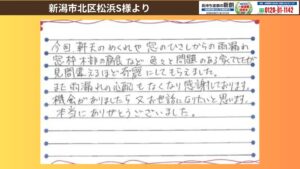 新潟市北区松浜S様より
0120-81-1142
今回 軒天のめくれや 窓のひさしからの雨漏れ
窓枠木部の腐食など 色々と問題のある家でしたが
見間違えるほど奇麗にしてもらえました。
また雨漏れの心配もなくなり感謝しております。
機会がありましたら 又お世話になりたいと思います。
本当にありがとうございました。